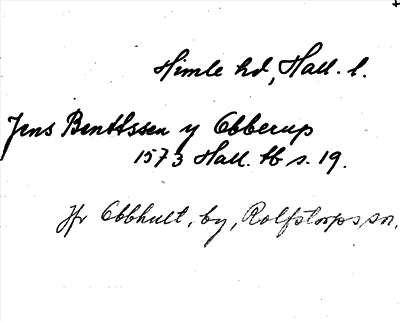 Himle hd, Hall. l.
Jens Benttssen y Obberup
1573 Hall. tb s. 19.
Jfr Obbhult, by, Rolfstorps sn.